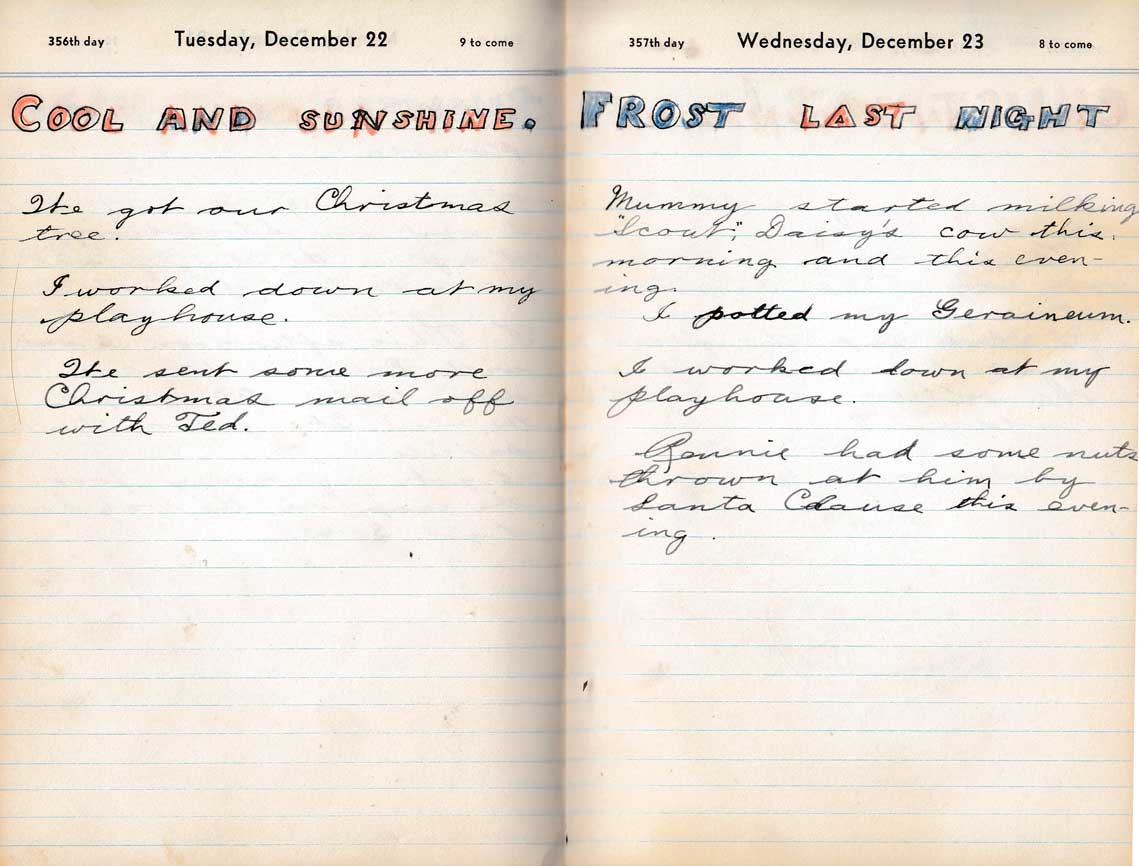 356th day Tuesday, December 22 9 to come
COOL AND SUNSHINE.
We got our Christmas
tree.
I worked down at my
playhouse.
We sent some more
Christmas mail off
with Ted.
357th day Wednesday, December 23 8 to come
FROST LAST NIGHT
Mummy started milking
"Scout", Daisy's cow this
morning and this even-
ing.
I potted my Geraineum.
I worked down at my
playhouse.
Ronnie had some nuts
thrown at him by
Santa Clause this even-
ing.